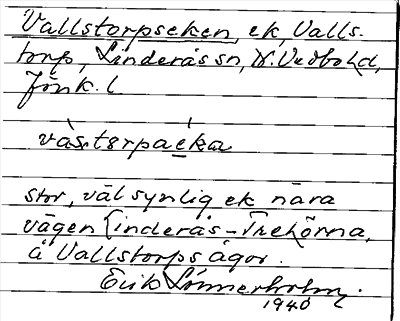 Vallstorpseken, ek, Valls-
torp, Linderås sn, N. Vedbo hd,
Jönk. l
västərpaeka
stor, väl synlig ek nära
vägen Linderås-Trehörna,
å Vallstorps ägor.
Erik Lönnerholm.
1940